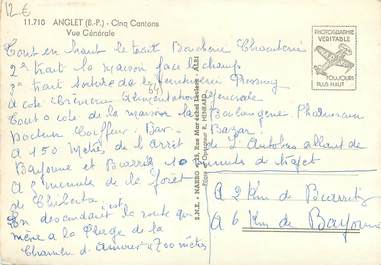 12€
11.710 ANGLET (B.-P.) - Cinq Cantons
Vue Générale
PHOTOGRAPHIE
VÉRITABLE
TOUJOURS
PLUS HAUT
Tout en haut le trait Boucherie Charcuterie
2e trait la maison face le champ
3e trait
a coté Epicerie Alimentation Générale
Tout a coté de la maison la Boulangerie Pharmacien
Docteur Coiffeur. Bar. Bazar.
a 150 Mètres de l'arrêt de l'Autobus allant de
Bayonne et Biarritz 10 minuts de trajet
a minute de la forêt
de Chiberta
En descendant la route qui
mène a la Plage de la
Chambre d'amour a 700 mètres
A 2 Km de Biarritz
A 6 Km de Bayonne